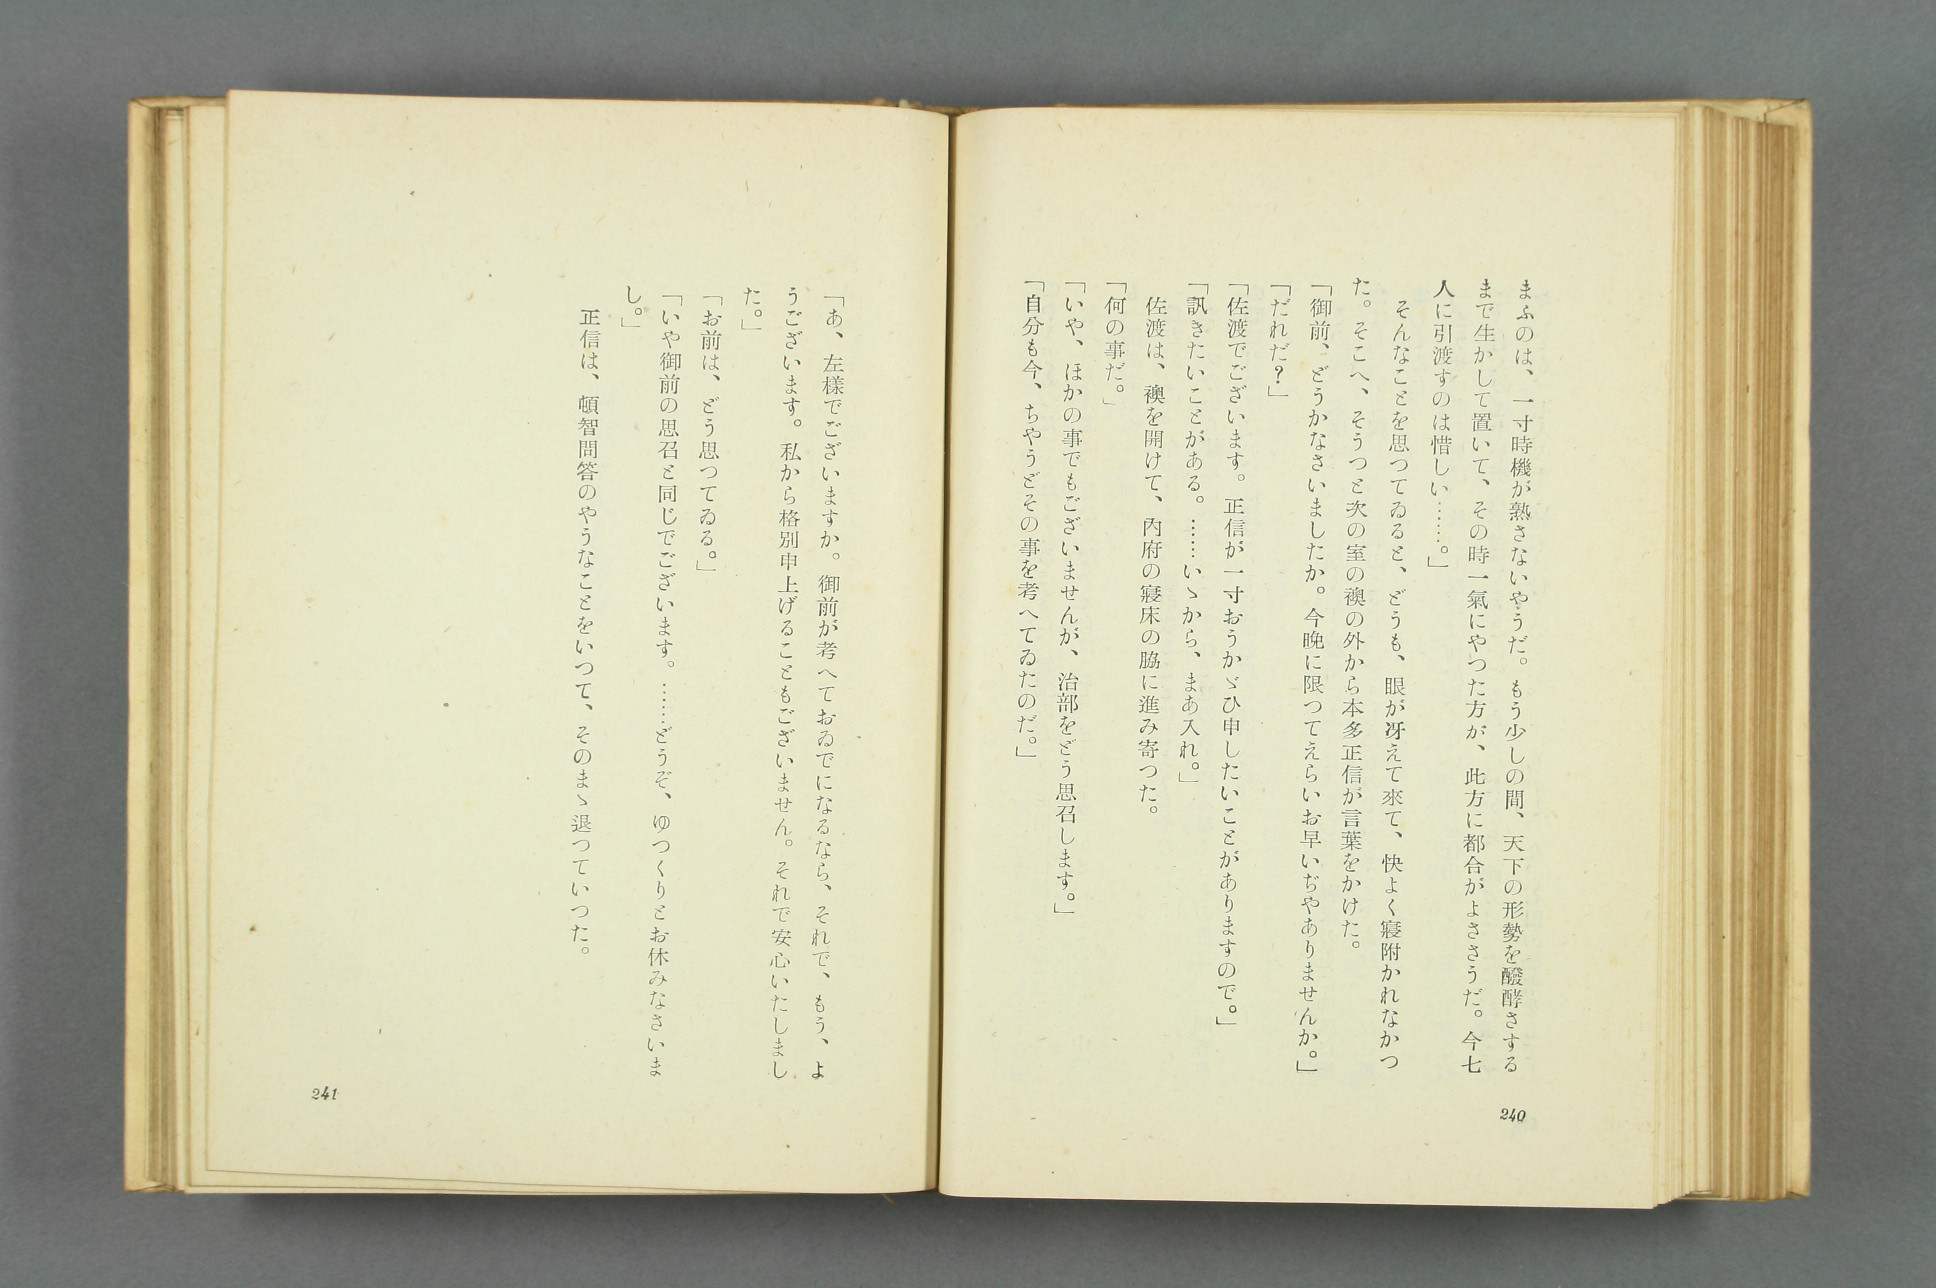 まふのは、一寸時機が熟さないやうだ。もう少しの間、天下の形勢を醱酵さする
まで生かして置いて、その時一氣にやつた方が、此方に都合がよささうだ。今七
人に引渡すのは惜しい……。」
そんなことを思つてゐると、どうも、眼が冴えて來て、快よく寢附かれなかつ
た。そこへ、そうつと次の室の襖の外から本多正信が言葉をかけた。
「御前、どうかなさいましたか。今晩に限つてえらいお早いぢやありませんか。」
「だれだ？」
「佐渡でございます。正信が一寸おうかゞひ申したいことがありますので。」
「訊きたいことがある。……いゝから、まあ入れ。」
佐渡は、襖を開けて、内府の寢床の脇に進み寄つた。
「何の事だ。」
「いや、ほかの事でもございませんが、治部をどう思召します。」
「自分も今、ちやうどその事を考へてゐたのだ。」
240
「あ、左樣でございますか。御前が考へておゐでになるなら、それで、もう、よ
うございます。私から格別申上げることもございません。それで安心いたしまし
た。」
「お前は、どう思つてゐる。」
「いや御前の思召と同じでございます。……どうぞ、ゆつくりとお休みなさいま
し。」
正信は、頓智問答のやうなことをいつて、そのまゝ退つていつた。
241